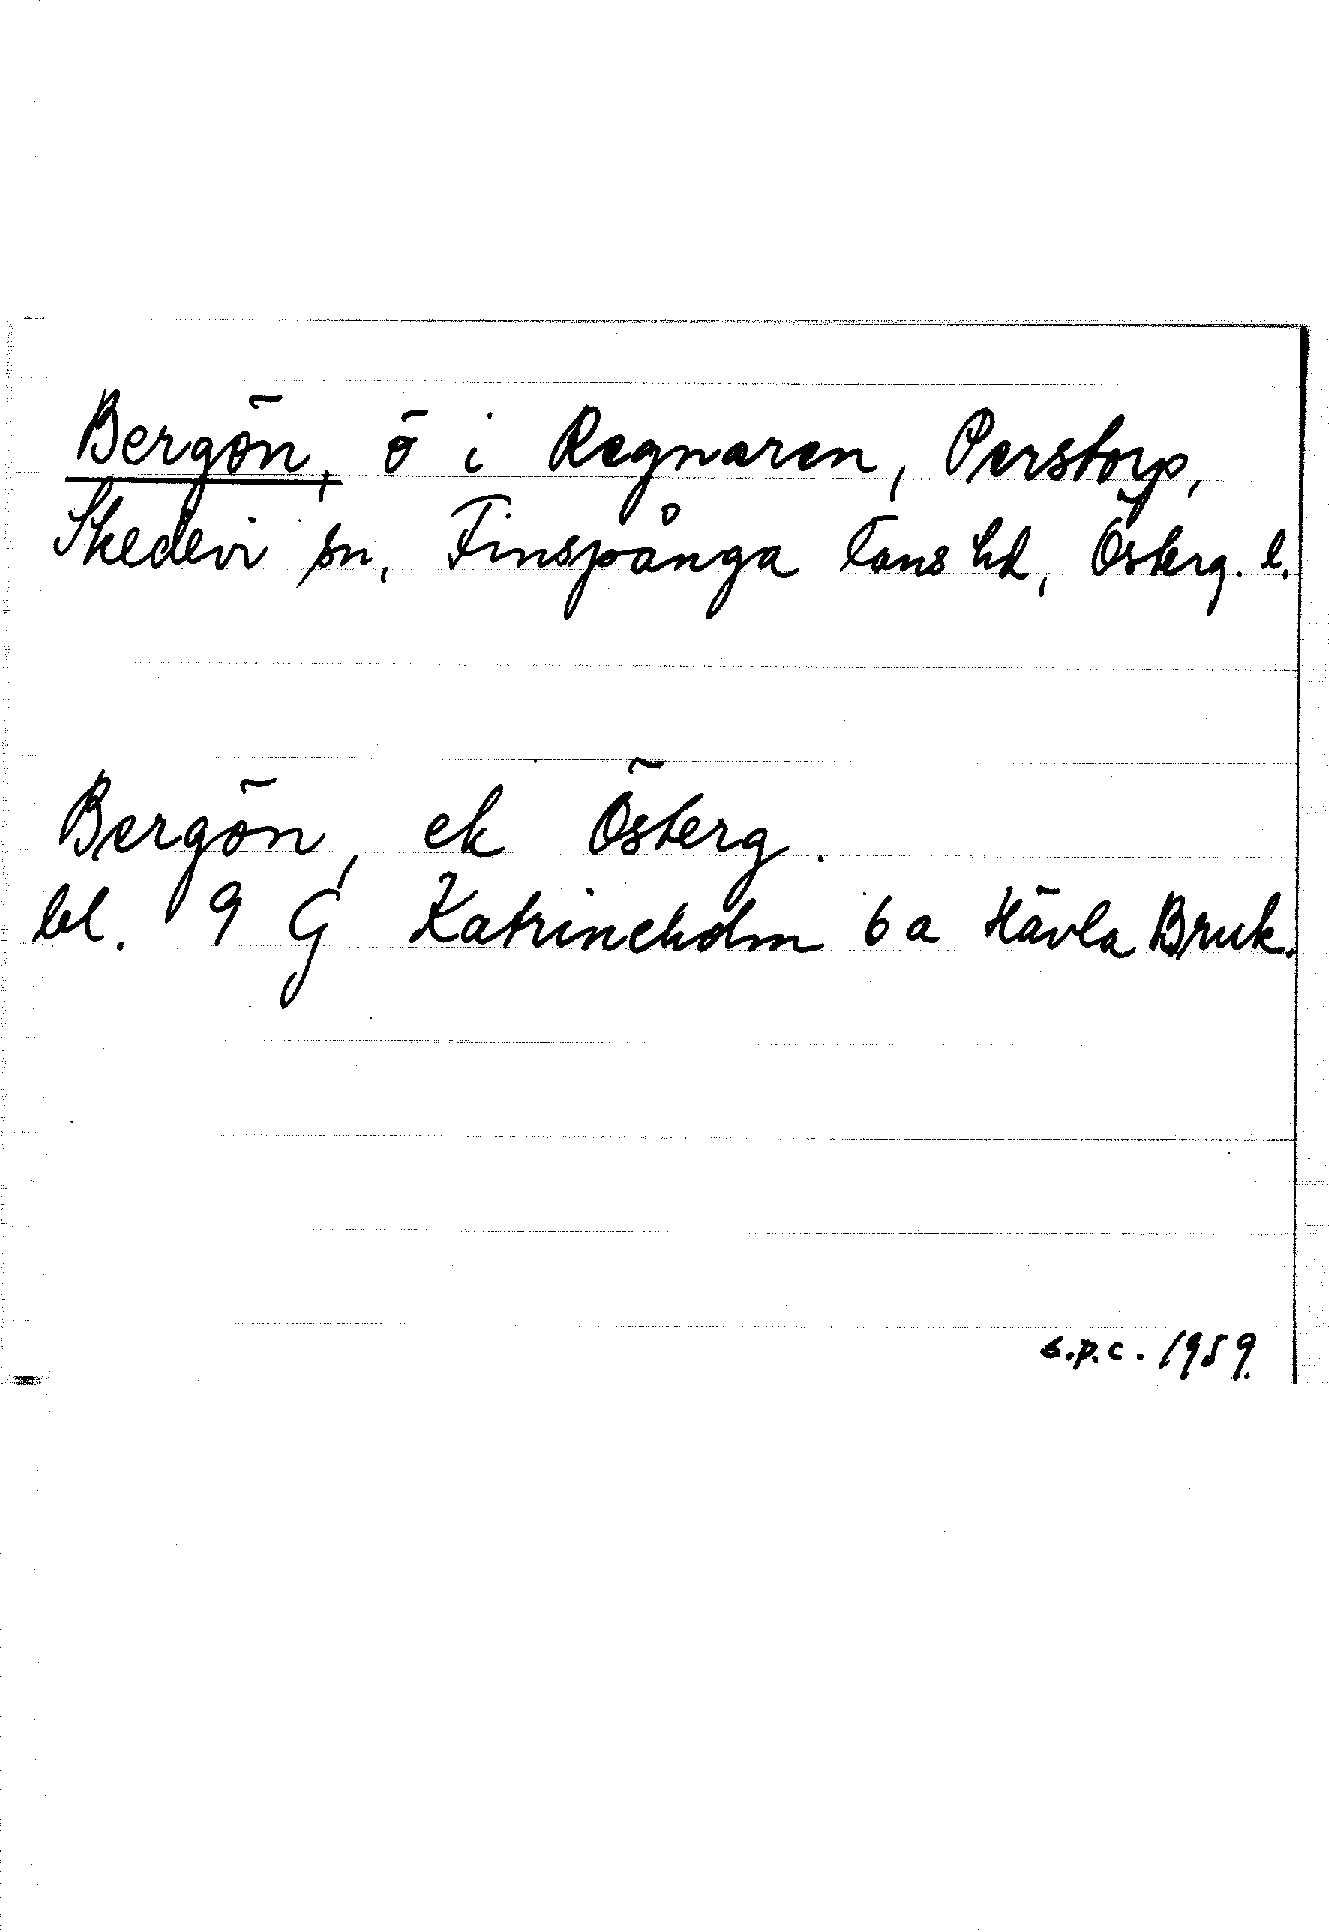 Bergön, ö i Regnaren, Perstorp,
Skedevi sn, Finspånga läns hd, Österg. l.
Bergön, ek Österg.
bl. 9 G Katrineholm 6 a Hävla Bruk.
s.p.c. 1959.